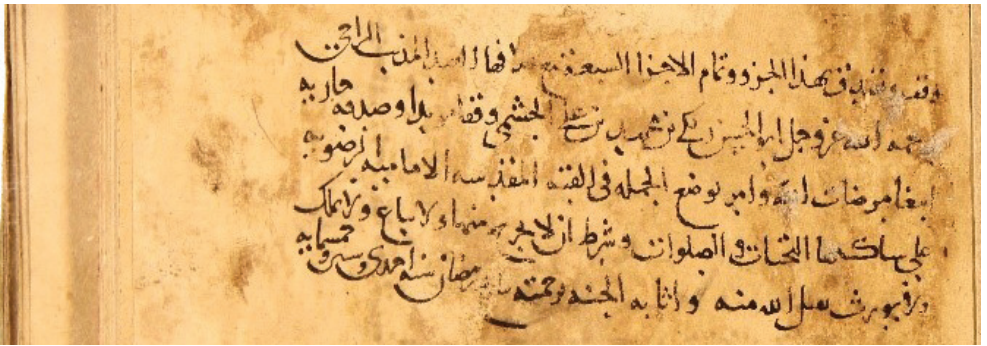 وقف وتصدق بهذا الجزو وتمام الاجزا السبعة العبد المذنب الراجي
رحمة الله عز وجل ابو الحسن بن علي الجشمي وقفا مؤبدا وصدقه جاريه
ابتغا مرضات الله وامر بوضع الجمله في القبه المقدسه الاماميه الرضويه
على ساكنها التحيات والصلوات وشرط ان لا يخرج منها ولا تباع ولا تملك
ولا يورث تقبل الله منه واثابه الجنه برحمته رمضان سنه احدى وخمسمايه